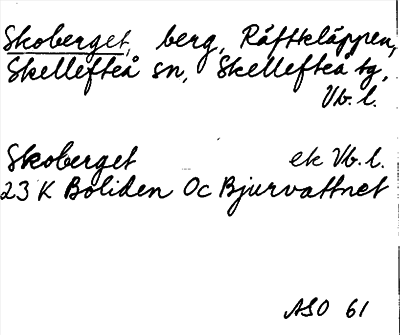 Skoberget, berg, Råftkläppen,
Skellefteå sn, Skellefteå tg,
Vb. l.
Skoberget ek Vb. l.
23 K Boliden Oc Bjurvattnet
ASO 61